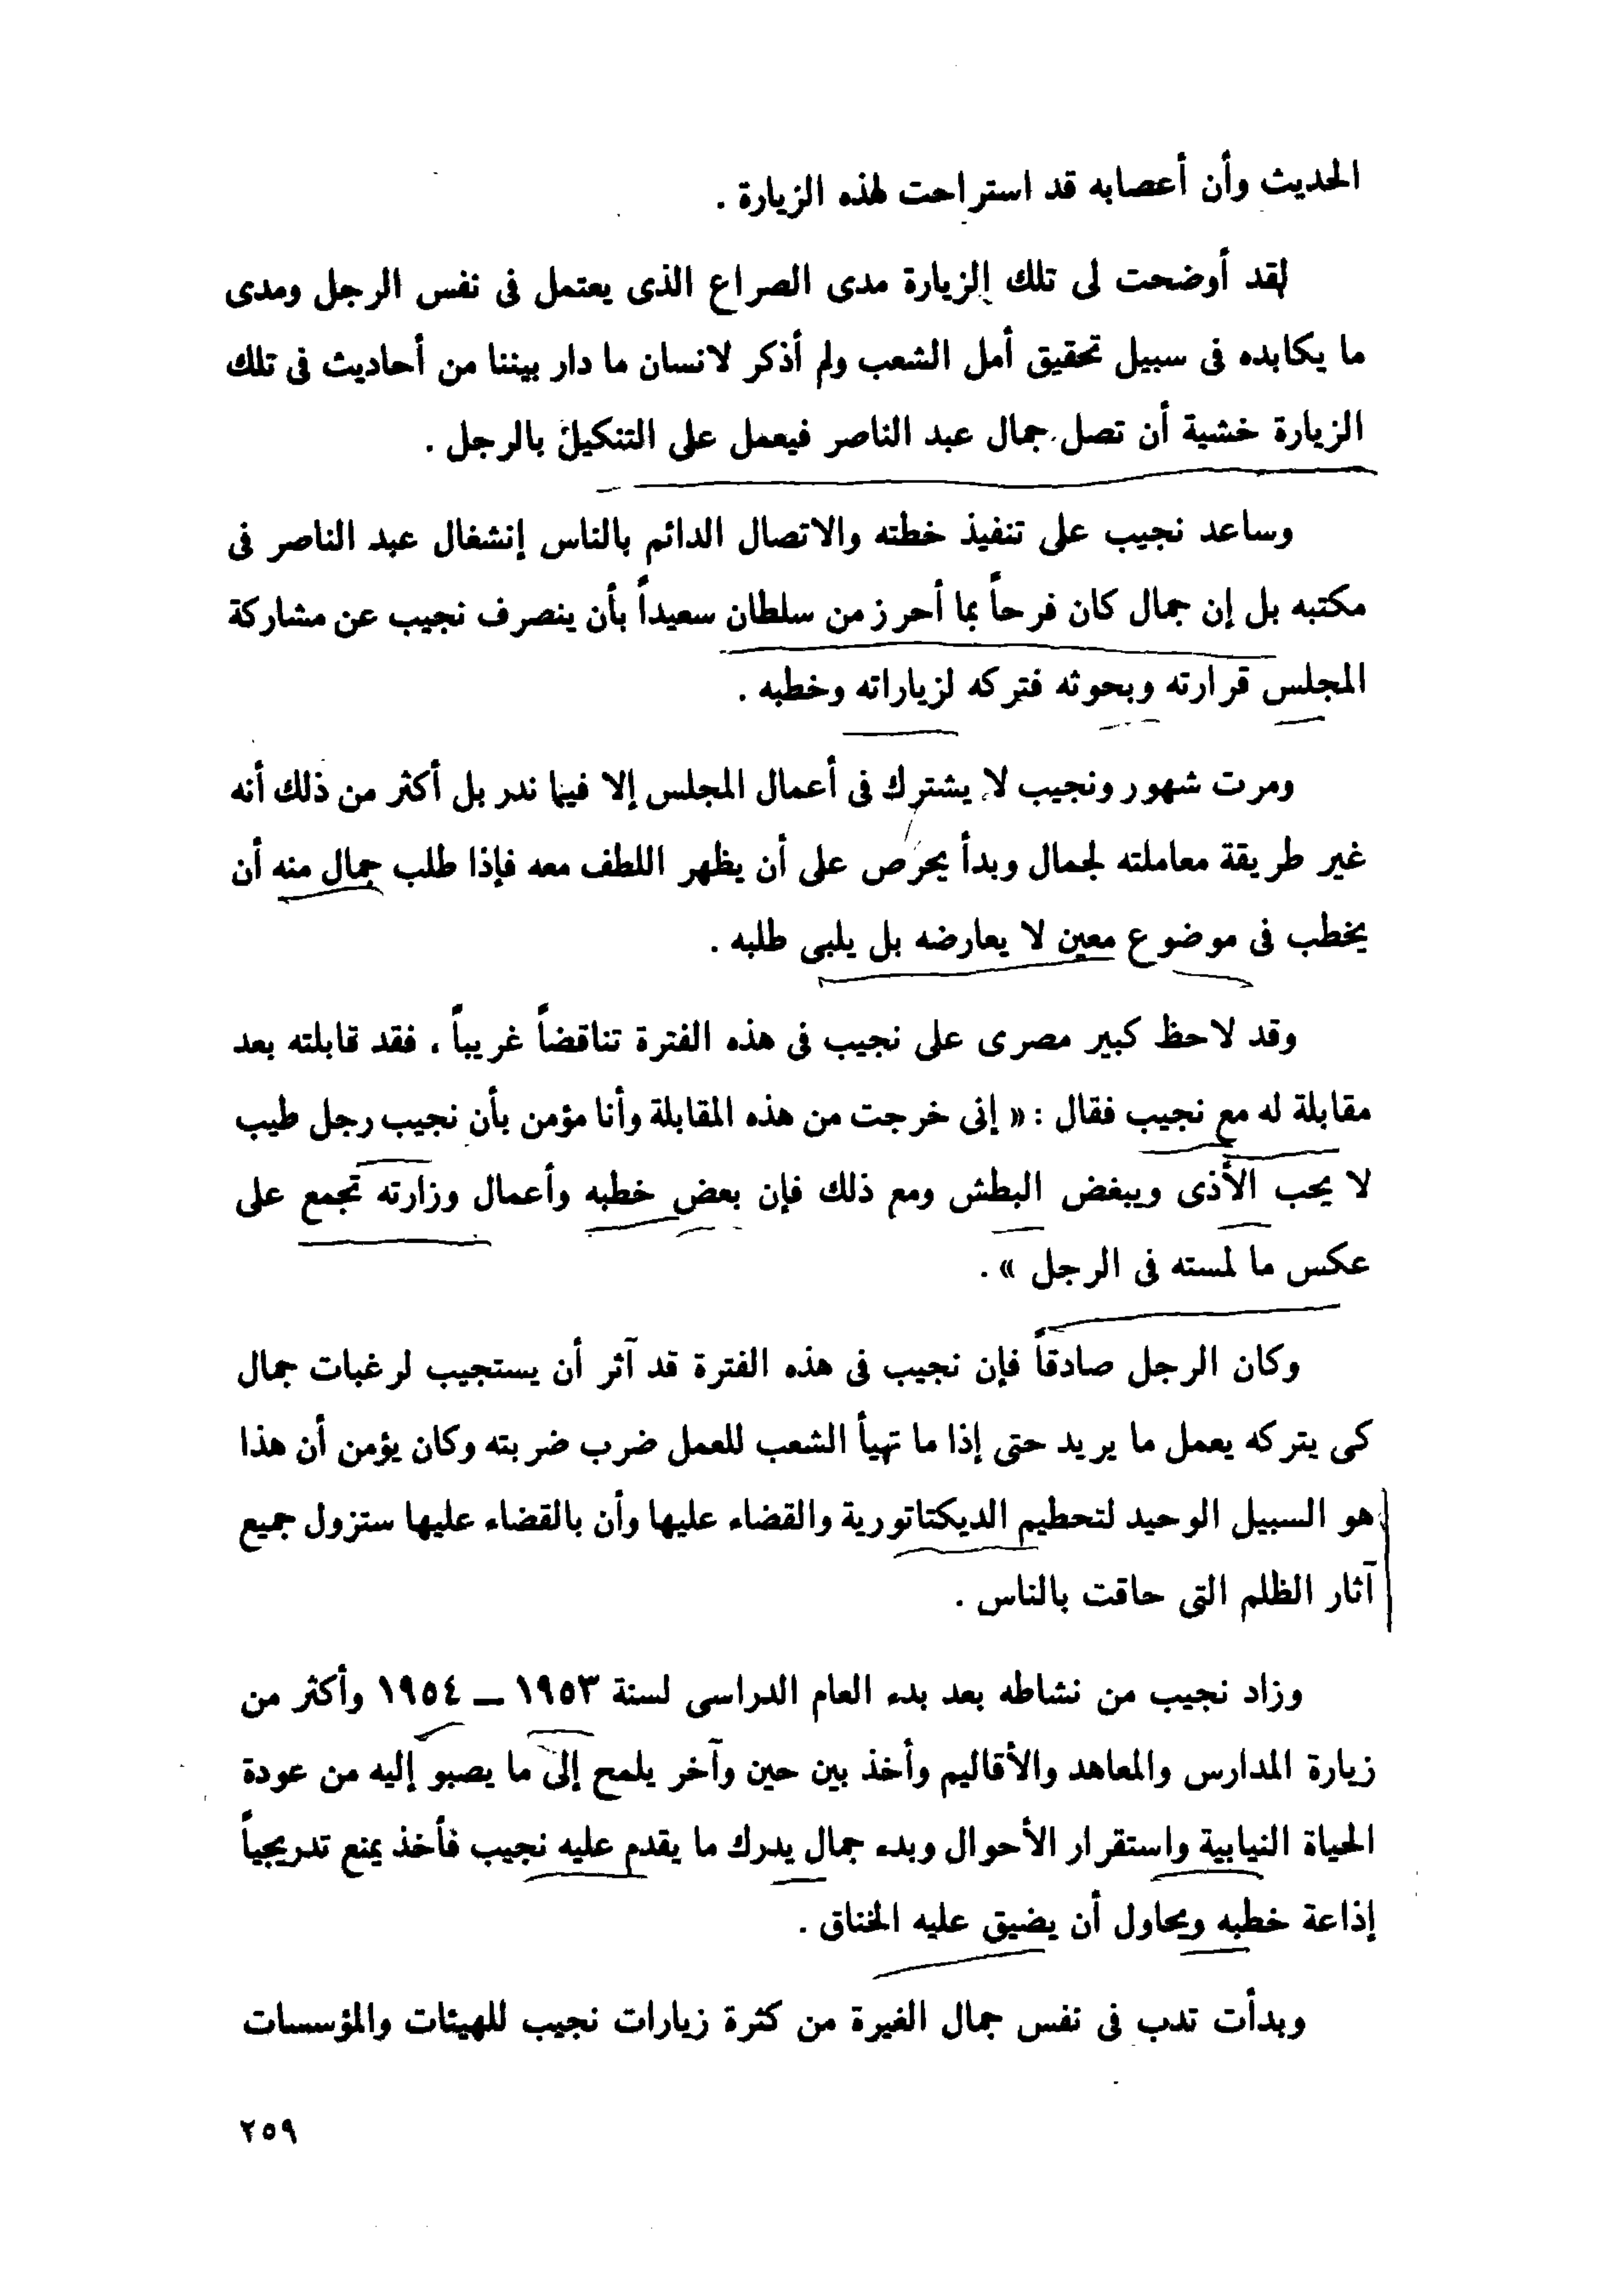 الحديث وأن أعصابه قد استراحت لهذه الزيارة .
لقد أوضحت لى تلك الزيارة مدى الصراع الذى يعتمل فى نفس الرجل ومدى
ما يكابده فى سبيل تحقيق أمل الشعب ولم أذكر لانسان ما دار بيننا من أحاديث فى تلك
الزيارة خشية أن تصل جمال عبد الناصر فيعمل على التنكيل بالرجل .
وساعد نجيب على تنفيذ خطته والاتصال الدائم بالناس إنشغال عبد الناصر فى
مكتبه بل إن جمال كان فرحاً بما أحرز من سلطان سعيداً بأن ينصرف نجيب عن مشاركة
المجلس قرارته وبحوثه فتركه لزياراته وخطبه .
ومرت شهور ونجيب لا يشترك فى أعمال المجلس إلا فيما ندر بل أكثر من ذلك أنه
غير طريقة معاملته لجمال وبدأ يحرص على أن يظهر اللطف معه فإذا طلب جمال منه أن
يخطب فى موضوع معين لا يعارضه بل يلبى طلبه .
وقد لاحظ كبير مصرى على نجيب فى هذه الفترة تناقضاً غريباً . فقد قابلته بعد
مقابلة له مع نجيب فقال : « إنى خرجت من هذه المقابلة وأنا مؤمن بأن نجيب رجل طيب
لا يحب الأذى ويبغض البطش ومع ذلك فإن بعض خطبه وأعمال وزارته تجمع على
عكس ما لمسته فى الرجل » .
وكان الرجل صادقاً فإن نجيب فى هذه الفترة قد آثر أن يستجيب لرغبات جمال
كى يتركه يعمل ما يريد حتى إذا ما تهيأ الشعب للعمل ضرب ضربته وكان يؤمن أن هذا
هو السبيل الوحيد لتحطيم الديكتاتورية والقضاء عليها وأن بالقضاء عليها ستزول جميع
آثار الظلم التى حاقت بالناس .
وزاد نجيب من نشاطه بعد بدء العام الدراسى لسنة ١٩٥٣ – ١٩٥٤ وأكثر من
زيارة المدارس والمعاهد والأقاليم وأخذ بين حين وآخر يلمح إلى ما يصبو إليه من عودة
الحياة النيابية واستقرار الأحوال وبدء جمال يدرك ما يقدم عليه نجيب فأخذ يمنع تدريجياً
إذاعة خطبه ويحاول أن يضيق عليه الخناق .
وبدأت تدب فى نفس جمال الغيرة من كثرة زيارات نجيب للهيئات والمؤسسات
٢٥٩